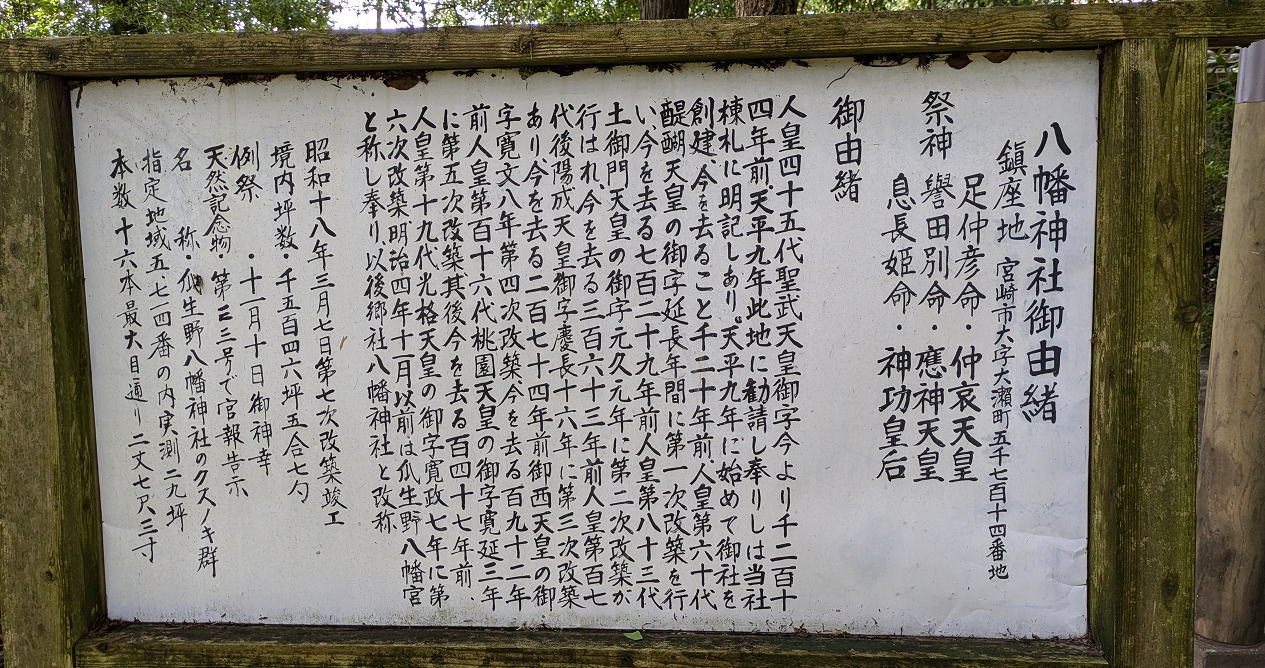 八幡神社御由緒
鎮座地 宮崎市大字大瀬町五千七百十四番地
足仲彦命・仲哀天皇
祭神 譽田別命・應神天皇
息長姫命・神功皇后
御由緒
人皇四十五代聖武天皇御字今より千二百十
四年前、天平九年此地に勧請し奉りしは当社
棟札に明記しあり。天平九年に始めて御社を
創建、今を去ること千二十年前人皇第六十代
醍醐天皇の御字延長年間に第一次改築を行
い今を去る七百二十九年前人皇第八十三代
土御門天皇の御字元久元年に第二次改築が
行はれ、今を去る三百六十三年前人皇第百七
代後陽成天皇御字慶長十六年に第三次改築
あり今を去る二百七十四年前御西天皇の御
字寛文八年第四次改築、今を去る百九十二年
前人皇第百十六代桃園天皇の御字寛延三年
に第五次改築其後今を去る百四十七年前、
人皇第十九代光格天皇の御字寛政七年に第
六次改築、明治四年十一月以前は瓜生野八幡宮
と称し奉り以後郷社八幡神社と改称
昭和十八年三月七日第七次改築竣工
境内坪数・千五百四六坪五合七勺
例祭・十一月十日御神幸
天然記念物・第二三号で官報告示
名 称・瓜生野八幡神社のクスノキ群
指定地域五、七四番の内実測二九坪
本数十六本最大目通り二丈七尺三寸